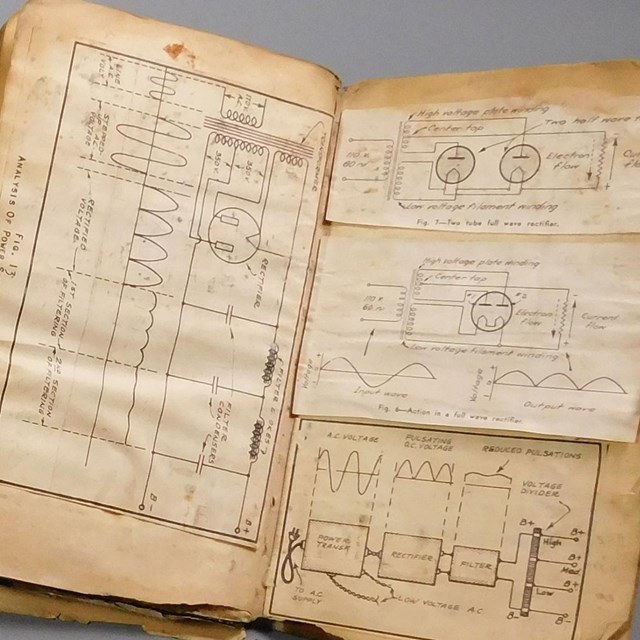 Fig. 13
ANALYSIS OF POWER
STEPPED
VOLTAGE
RECTIFIED
VOLTAGE
1ST SECTION
OF FILTERING
2ND SECTION
OF FILTERING
RECTIFIER
FILTER
CONDENSERS
B+
B-
High voltage plate winding
Center tap
Two half wave
110 v
60 ~
Electron
flow
Low voltage filament winding
Fig. 7—Two tube full wave rectifier.
High voltage plate winding
Center tap
110 v
60 ~
Electron
flow
Current
flow
Low voltage filament winding
Voltage
Input wave
Voltage
Output wave
Fig. 6—Action in a full wave rectifier.
A.C. VOLTAGE
PULSATING
D.C. VOLTAGE
REDUCED PULSATIONS
VOLTAGE
DIVIDER
POWER
TRANSF.
RECTIFIER
FILTER
B+
B+
High
B+
Med
B+
Low
B-
B-
TO A.C.
SUPPLY
LOW VOLTAGE A.C.